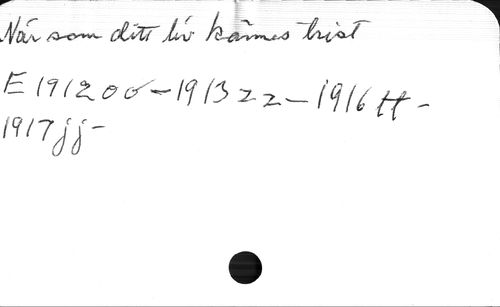 När som ditt liv kännes trist
E 1912 oo - 1913 zz - 1916 tt -
1917 jj -